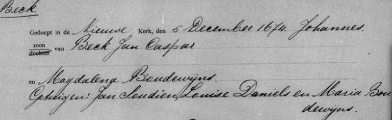 Beck
Gedoopt in de Nieuwe Kerk, den 5 December 1674. Johannes
zoon
dochter van Beck Jan Caspar
en Magdalena Boudewijns.
Getuigen: Jan Soudien, Louise Daniels en Maria Bou
dewijns.